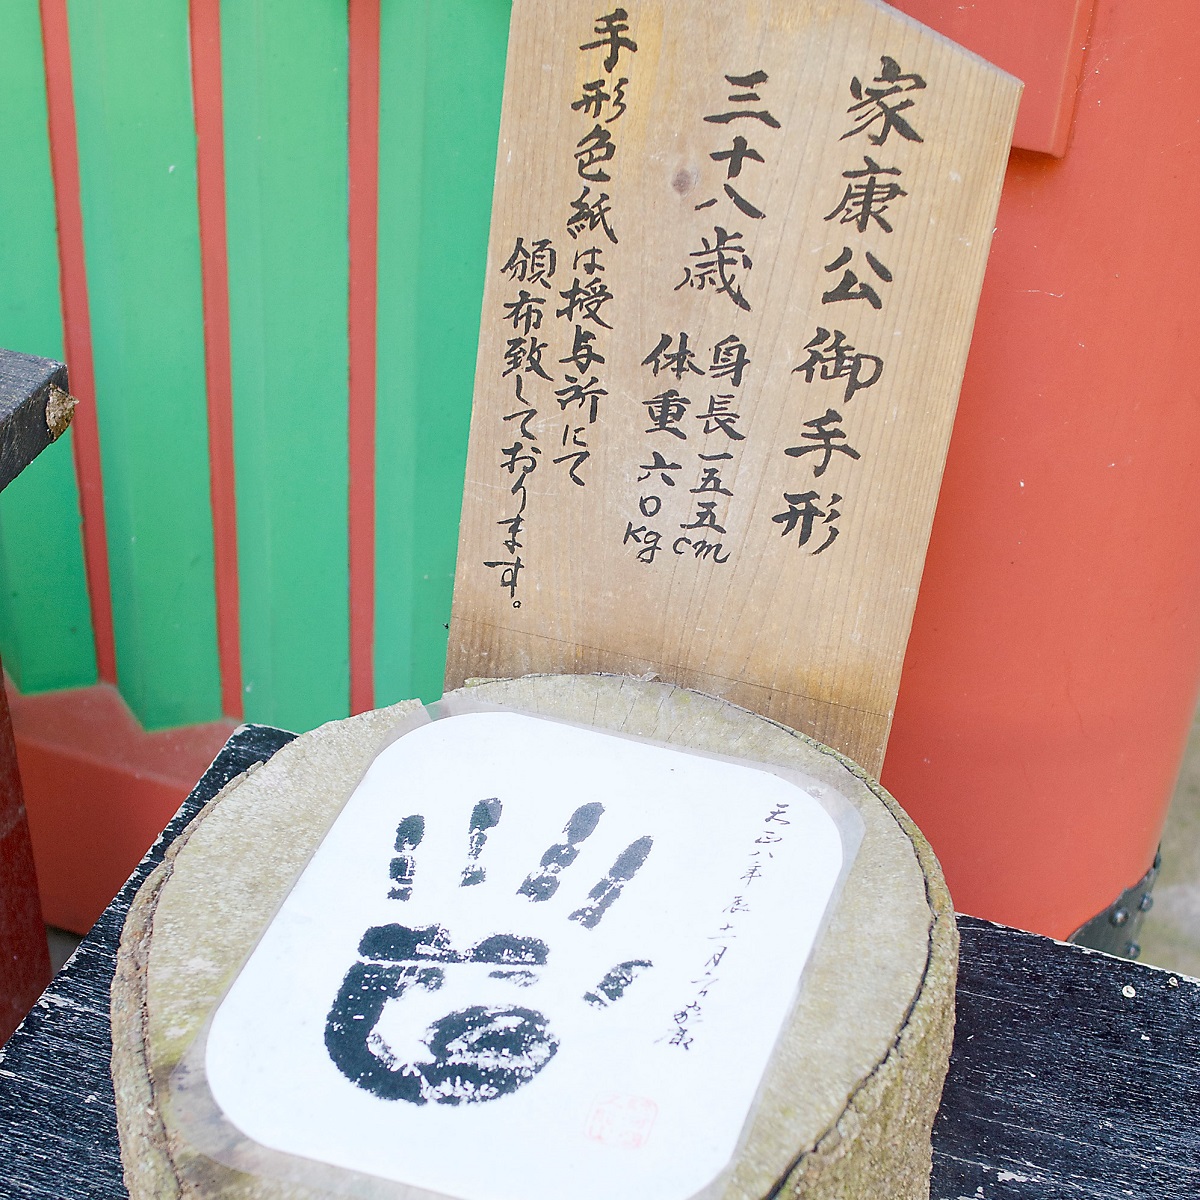 家康公御手形
三十八歳
身長一五五cm
体重六〇kg
手形色紙は授与所にて
頒布致しております。
天正八年